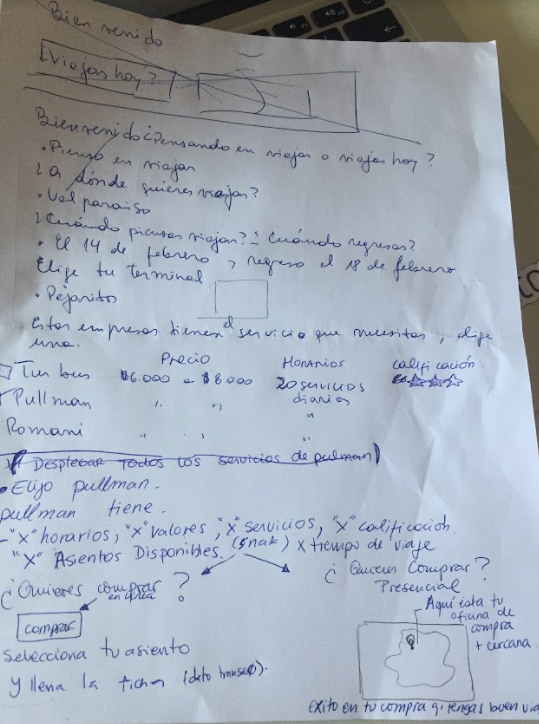 Bienvenido
¿Viajas hoy?
Bienvenido ¿Pensando en viajar o viajas hoy?
• Pienso en viajar
¿A dónde quieres viajar?
• Valparaiso
¿Cuándo piensas viajar? ¿Cuándo regresas?
• El 14 de febrero y regreso el 18 de febrero
Elige tu terminal
• Pajaritos
Estas empresas tienen el servicio que necesitas, elige
una.
Precio Horarios calificación
Tur bus $6.000 a $8000 20 servicios
diarios
Pullman " " "
Romani " " "
Desplegar todos los servicios de pullman
• Elijo pullman.
pullman tiene.
- "X" horarios, "X" valores, "X" servicios, "X" calificación.
"X" Asientos Disponibles. (snak) X tiempo de viaje
¿Quieres comprar
en linea ?
¿Quieres Comprar
Presencial ?
comprar
Aqui esta tu
oficina de
compra
+ cercana.
Selecciona tu asiento
y llena la ficha
Exito en tu compra q' tengas buen via